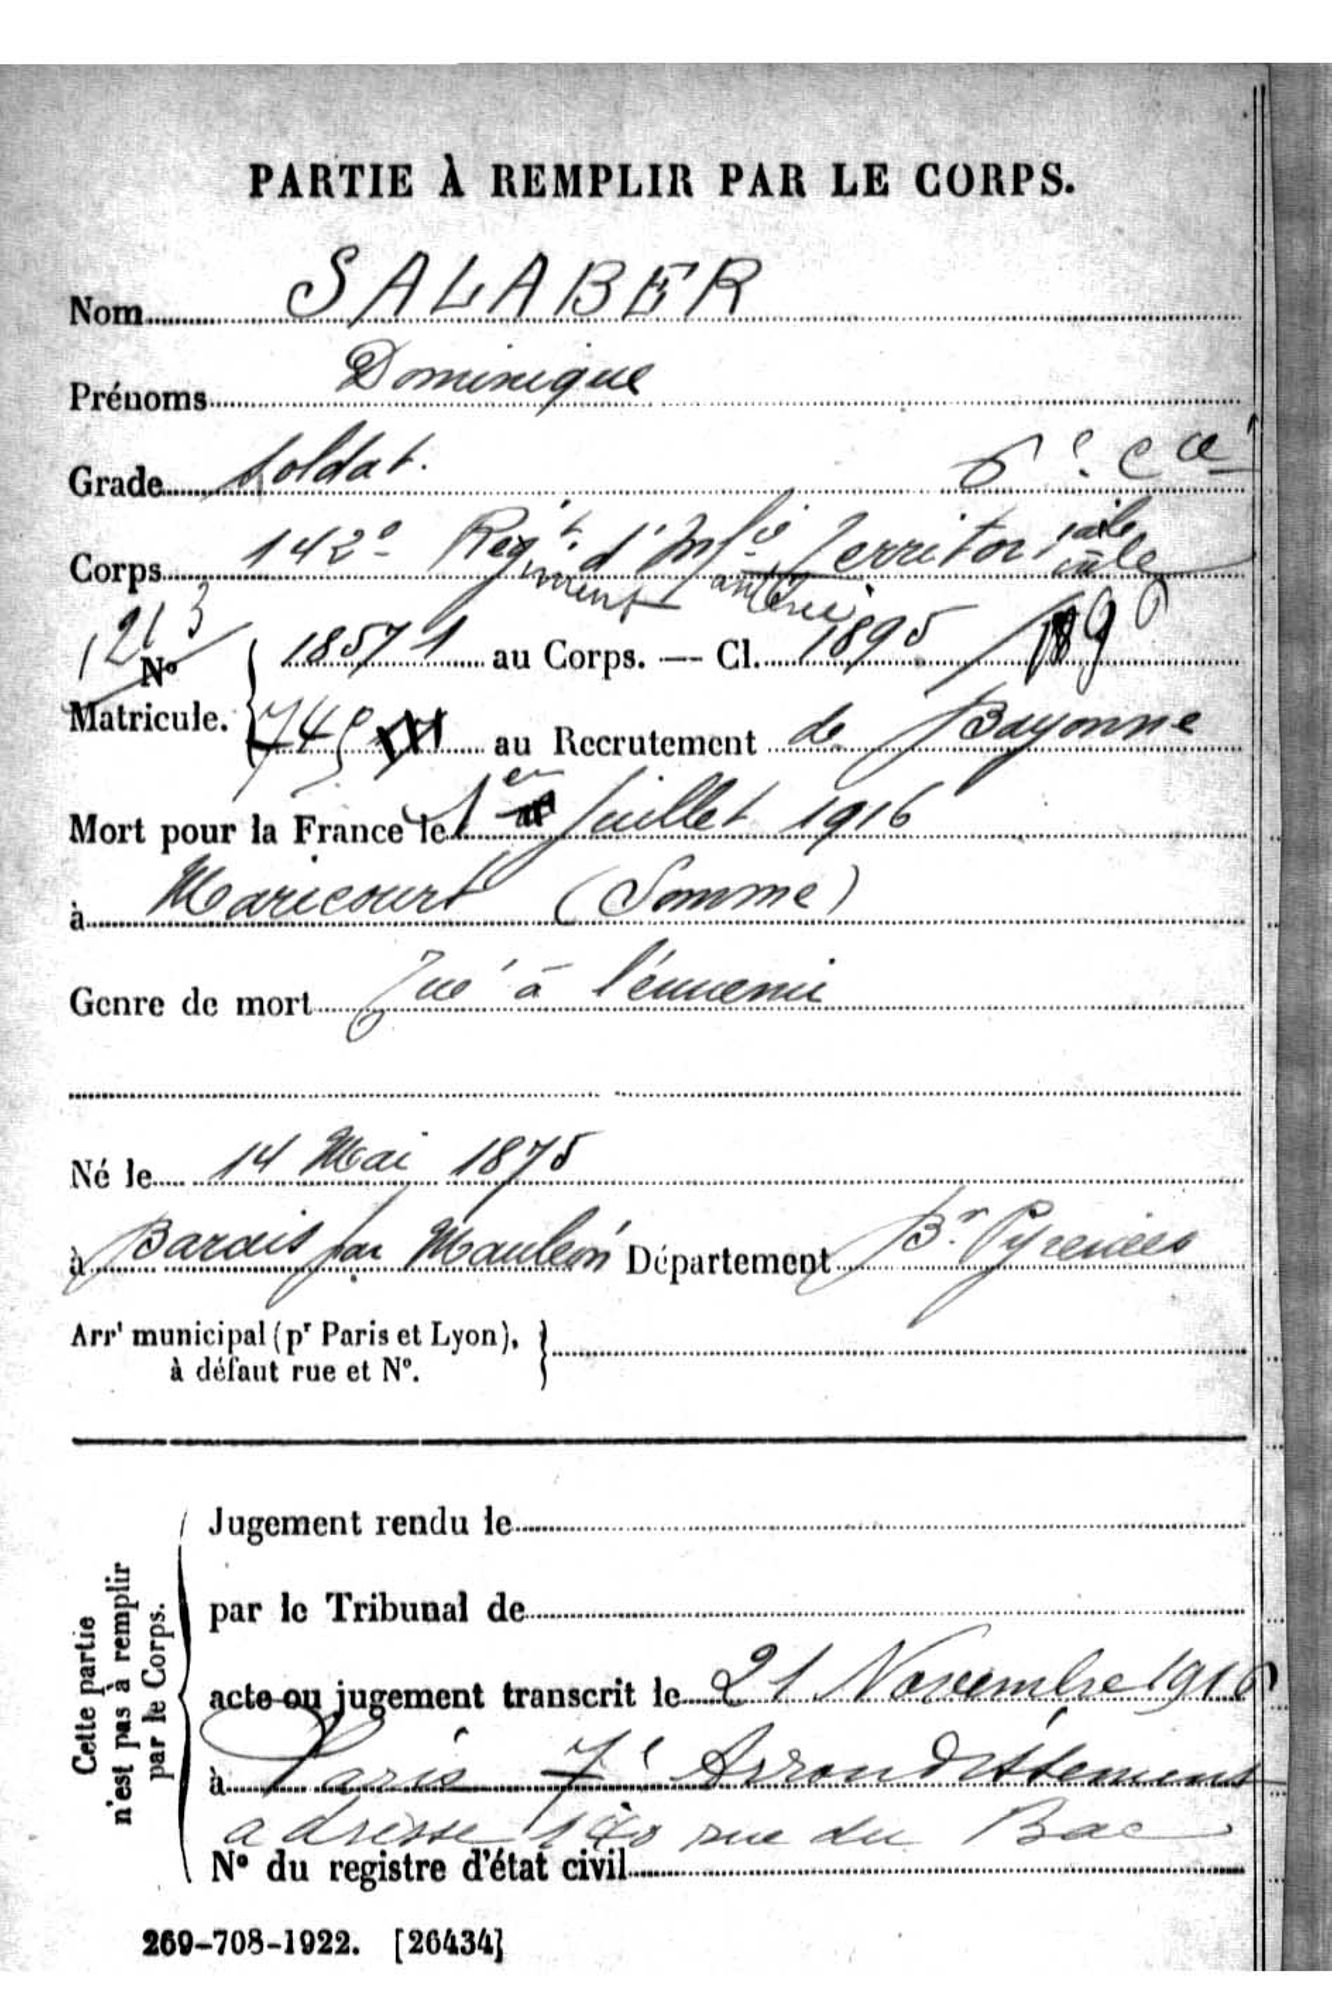 PARTIE À REMPLIR PAR LE CORPS.
Nom SALABER
Prénoms Dominique
Grade Soldat. 6e Cie
Corps 142e Regt d'Infie Territoriale
iment anterie
1213
No Matricule. 18571 au Corps. — Cl. 1895 / 1890
749 au Recrutement de Bayonne
Mort pour la France le 1er Juillet 1916
à Maricourt (Somme)
Genre de mort Tué à l'ennemi
Né le 14 Mai 1875
à Barcus par Mauléon Département Bses Pyrénées
Arrt municipal (pr Paris et Lyon), à défaut rue et No.
Cette partie n'est pas à remplir par le Corps.
Jugement rendu le
par le Tribunal de
acte ou jugement transcrit le 21 Novembre 1916
à Paris 7e Arrondissement
adresse 140 rue du Bac
No du registre d'état civil
269-708-1922. [26434]